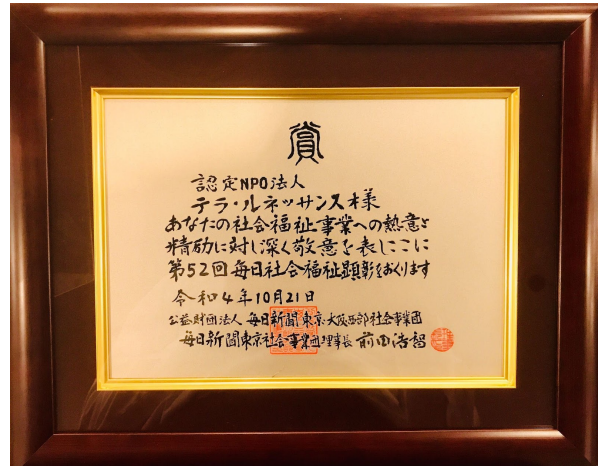 賞
認定NPO法人
テラ・ルネッサンス様
あなたの社会福祉事業への熱意と
精励に対し深く敬意を表しここに
第52回毎日社会福祉顕彰をおくります
令和4年10月21日
公益財団法人 毎日新聞東京・大阪・西部社会事業団
毎日新聞東京社会事業団理事長 前田浩智